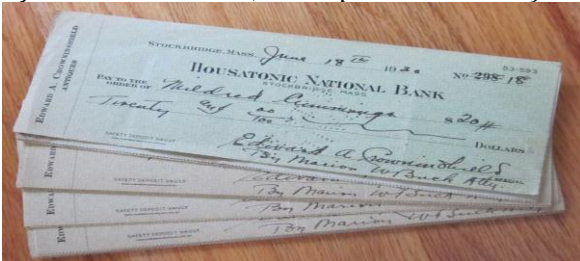 STOCKBRIDGE, MASS. June 18th 1930
53-593
No 298 18
HOUSATONIC NATIONAL BANK
STOCKBRIDGE, MASS.
PAY TO THE ORDER OF Mildred Cummings $20#
Twenty and 00/100 DOLLARS
SAFETY DEPOSIT VAULT
Edward A Crowninshield
By Marion W Buck Atty.
EDWARD A. CROWNINSHIELD
ANTIQUES
SAFETY DEPOSIT VAULT
By Marion W Buck
SAFETY DEPOSIT VAULT
By Marion
SAFETY DEPOSIT VAULT
By Marion W Buck
EDWARD
EDWA
EDW